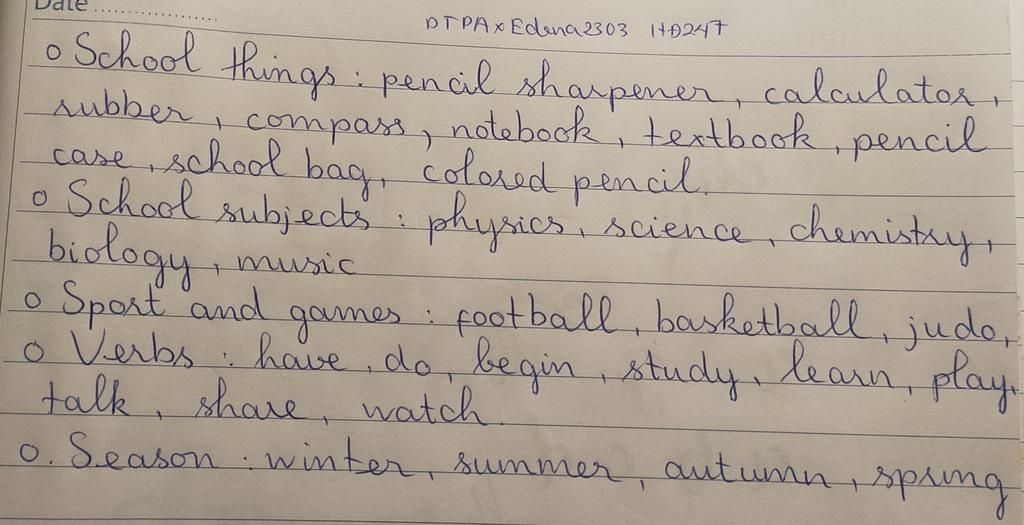 Date ....................
DTPAxEdena2303 HD247
o School things : pencil sharpener, calculator,
rubber, compass, notebook, textbook, pencil
case, school bag, colored pencil.
o School subjects : physics, science, chemistry,
biology, music
o Sport and games : football, basketball, judo,
o Verbs : have, do, begin, study, learn, play,
talk, share, watch.
o. Season : winter, summer, autumn, spring